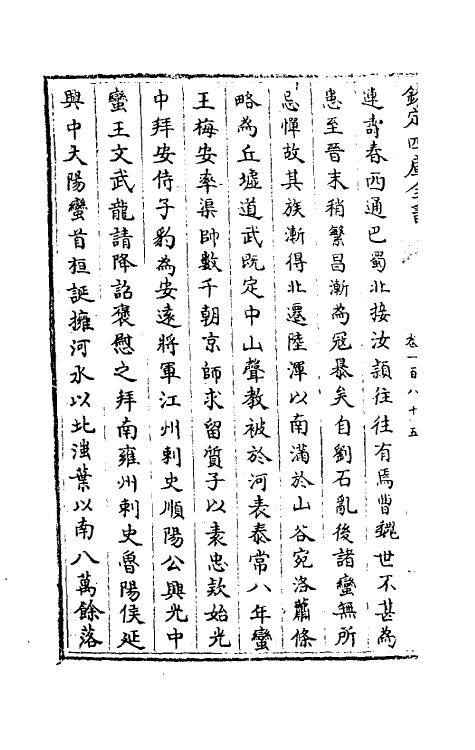 欽定四庫全書
卷一百八十五
連壽春西通巴蜀北接汝潁往往有焉曹魏世不甚為
患至晉末稍繁昌漸為冦暴矣自劉石亂後諸蠻無所
忌憚故其族漸得北遷陸渾以南滿於山谷宛洛蕭條
略為丘墟道武既定中山聲教被於河表泰常八年蠻
王梅安率渠帥數千朝京師求留質子以表忠款始光
中拜安侍子豹為安遠將軍江州刺史順陽公興光中
蠻王文武龍請降詔褒慰之拜南雍州刺史魯陽侯延
興中大陽蠻首桓誕擁河水以北滍葉以南八萬餘落